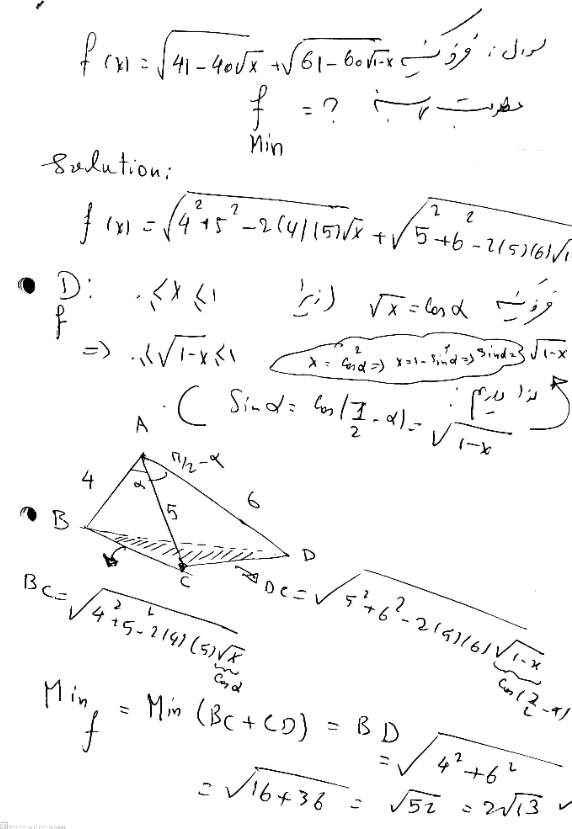 سوال: فرض کنید f(x) = √(41-40√x) + √(61-60√(1-x))
f Min = ? مطلوب است
Solution:
f(x) = √(4²+5²-2(4)(5)√x) + √(5²+6²-2(5)(6)√1
D f : 0≤x≤1 (زیرا √x = cosα فرض کنید
=> 0≤√(1-x)≤1 x = cos²α => x=1-sin²α => sinα = √(1-x)
Sinα = Cos(π/2 - α) = √(1-x)
A
π/2-α
4 α 5 6
B C D
BC = √(4²+5²-2(4)(5)√x) DC = √(5²+6²-2(5)(6)√(1-x))
Cosα Cos(π/2-α)
Min f = Min (BC+CD) = BD = √(4²+6²)
= √(16+36) = √52 = 2√13 ✓